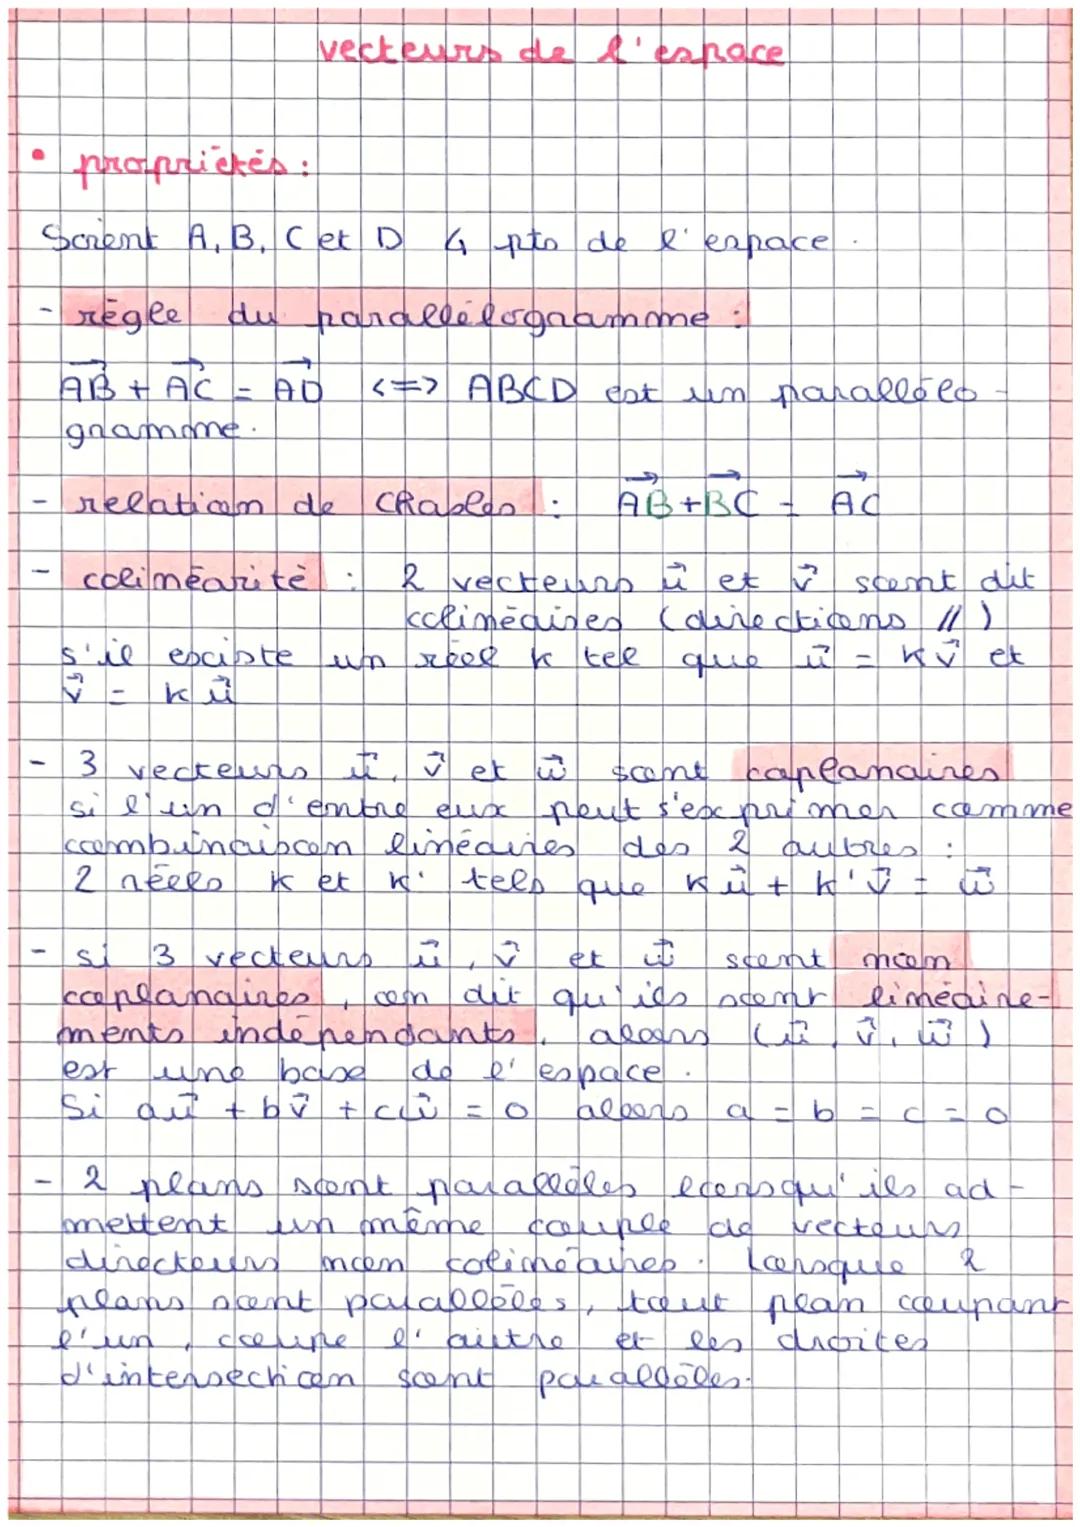 vecteurs de l'espace
• propriétés :
Soient A, B, C et D 4 pts de l'espace.
- règle du parallélogramme :
AB + AC = AD <=> ABCD est un parallélo-
gramme.
- relation de Chasles : AB + BC = AC
- colinéarité : 2 vecteurs u et v sont dit
colinéaires (directions //)
s'il existe un réel k tel que u = kv et
v = ku
- 3 vecteurs u, v et w sont coplanaires
si l'un d'entre eux peut s'exprimer comme
combinaison linéaires des 2 autres :
2 réels k et k' tels que ku + k'v = w
- si 3 vecteurs u, v et w sont non
coplanaires, on dit qu'ils sont linéaire-
ments indépendants, alors (u, v, w)
est une base de l'espace.
Si au + bv + cw = 0 alors a = b = c = 0
- 2 plans sont parallèles lorsqu'ils ad-
mettent un même couple de vecteurs
directeurs non colinéaires. Lorsque 2
plans sont parallèles, tout plan coupant
l'un, coupe l'autre et les droites
d'intersection sont parallèles.